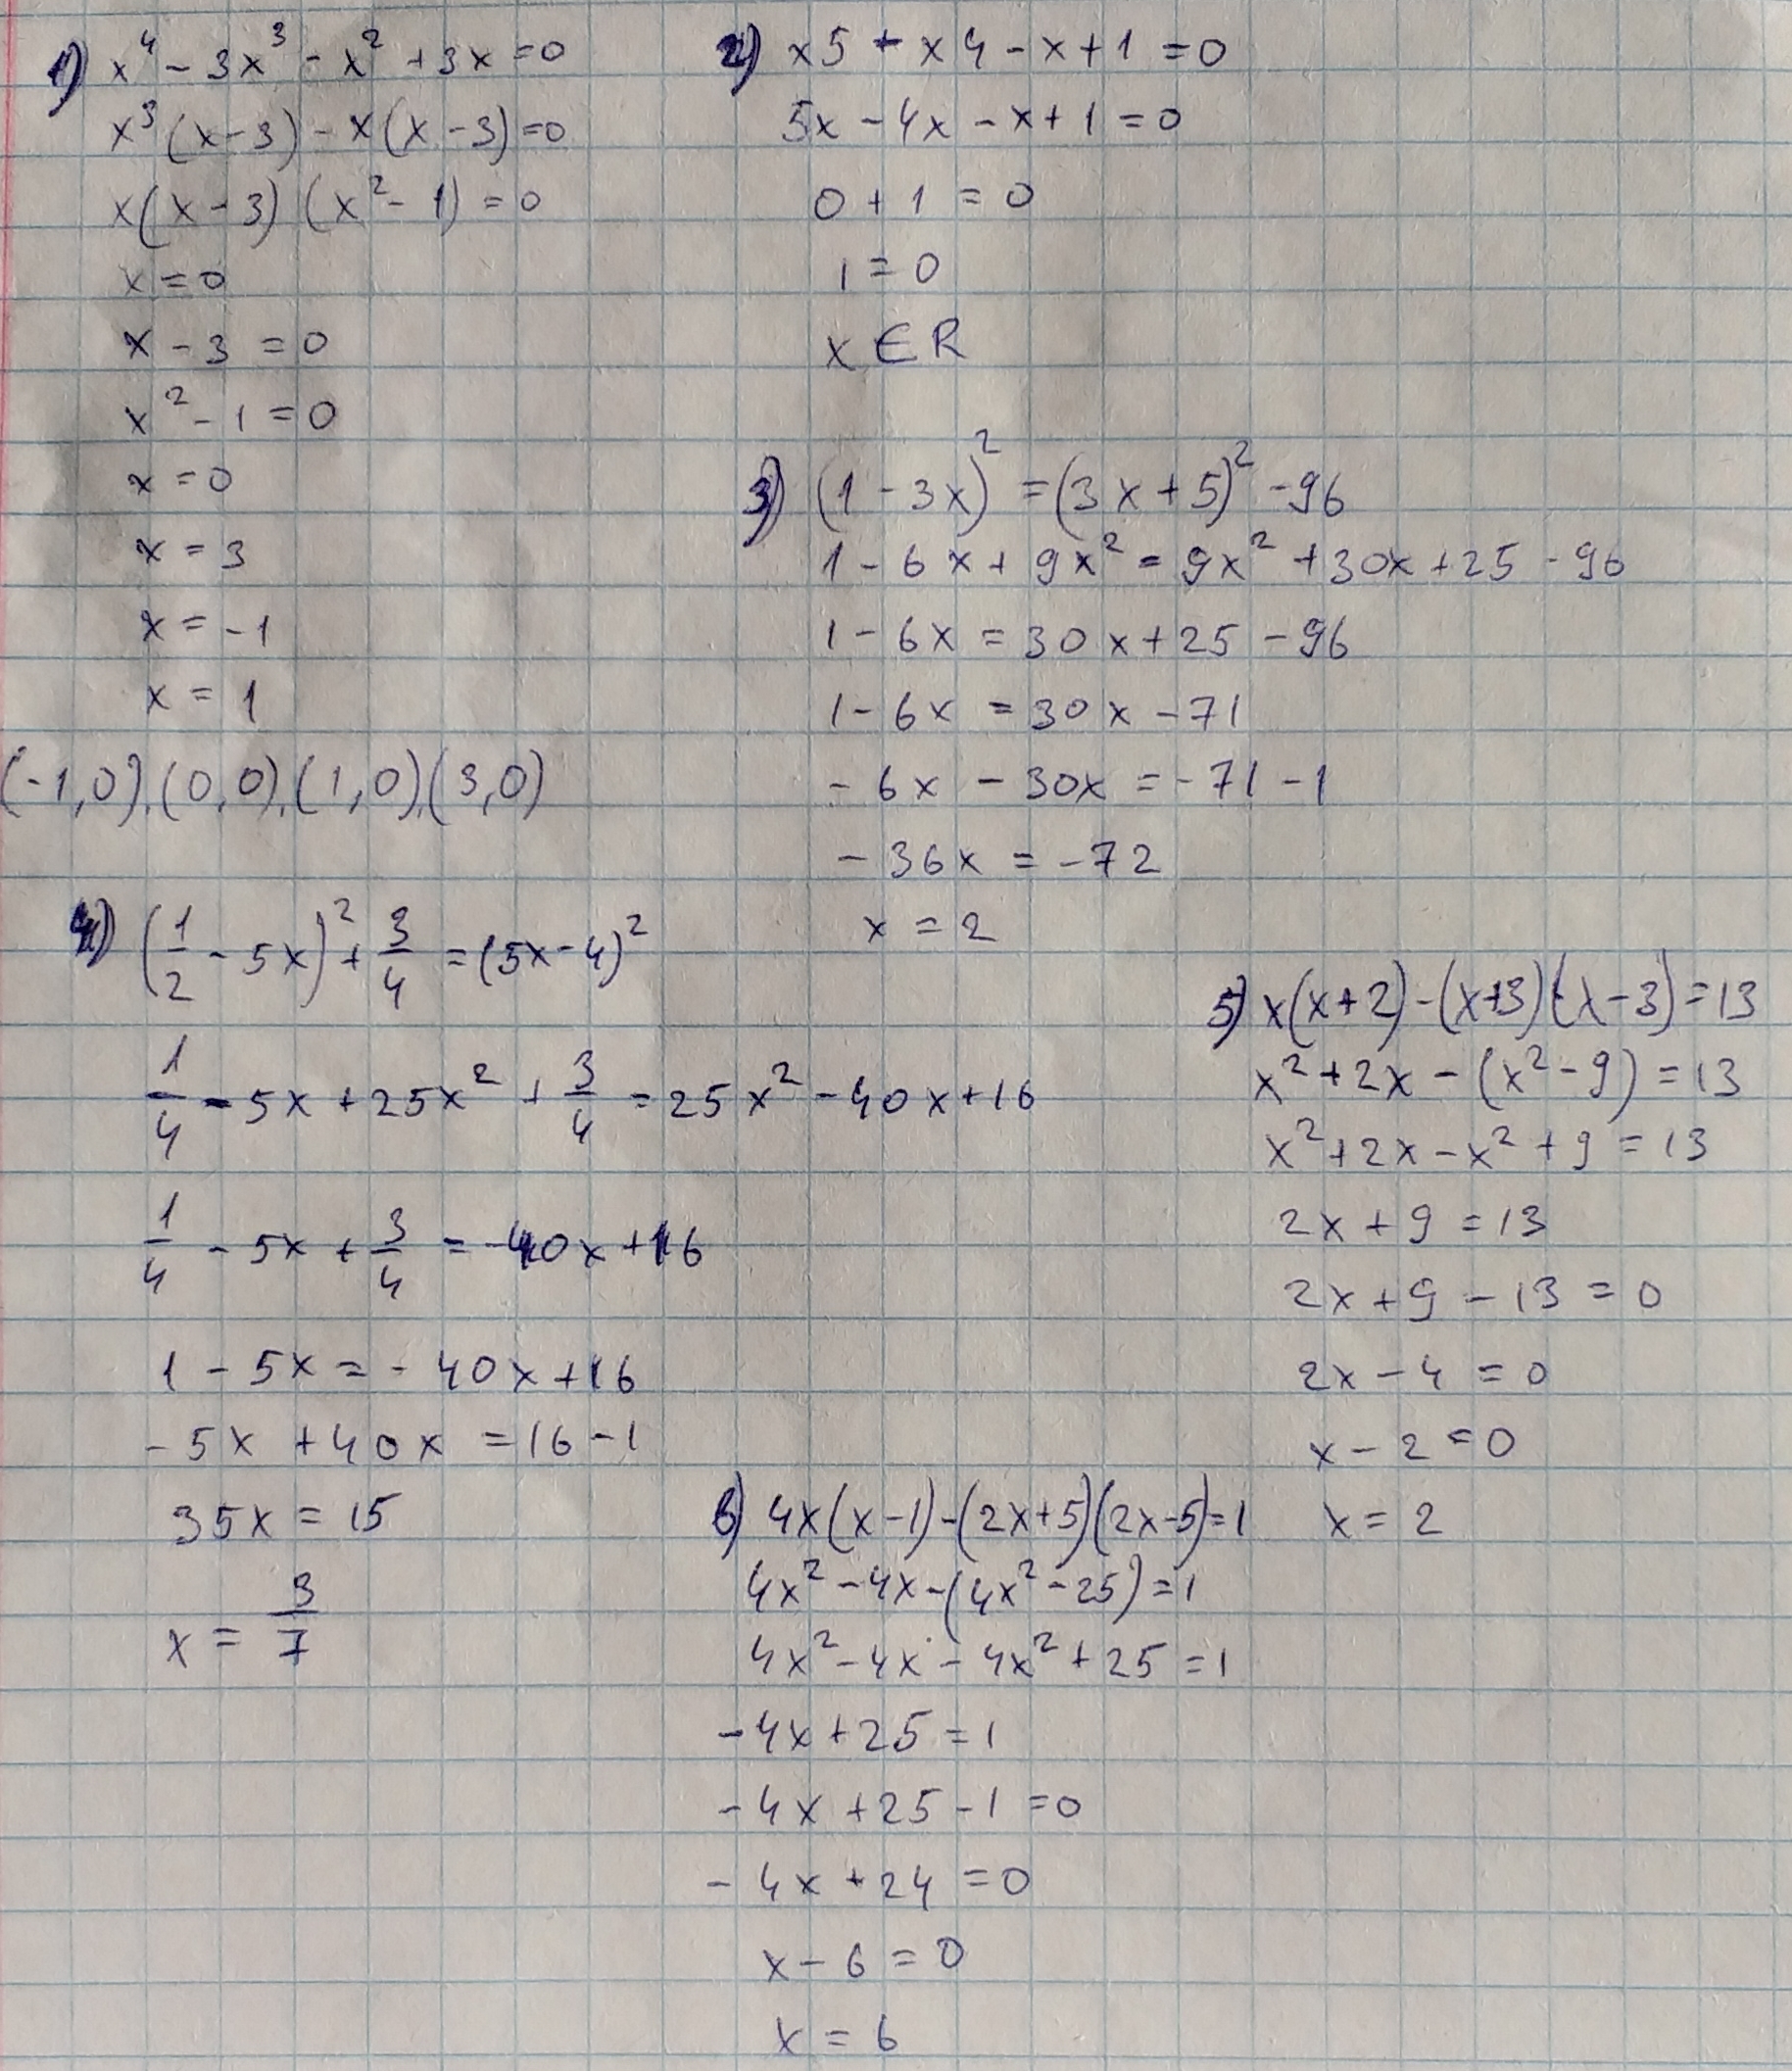 1) x⁴ - 3x³ - x² + 3x = 0
x³(x - 3) - x(x - 3) = 0
x(x - 3)(x² - 1) = 0
x = 0
x - 3 = 0
x² - 1 = 0
x = 0
x = 3
x = -1
x = 1
(-1,0),(0,0),(1,0),(3,0)
2) x5 - x4 - x + 1 = 0
5x - 4x - x + 1 = 0
0 + 1 = 0
1 = 0
x ∈ R
3) (1 - 3x)² = (3x + 5)² - 96
1 - 6x + 9x² = 9x² + 30x + 25 - 96
1 - 6x = 30x + 25 - 96
1 - 6x = 30x - 71
- 6x - 30x = -71 - 1
- 36x = -72
x = 2
4) (1/2 - 5x)² + 3/4 = (5x - 4)²
1/4 - 5x + 25x² + 3/4 = 25x² - 40x + 16
1/4 - 5x + 3/4 = -40x + 16
1 - 5x = - 40x + 16
- 5x + 40x = 16 - 1
35x = 15
x = 3/7
5) x(x + 2) - (x + 3)(x - 3) = 13
x² + 2x - (x² - 9) = 13
x² + 2x - x² + 9 = 13
2x + 9 = 13
2x + 9 - 13 = 0
2x - 4 = 0
x - 2 = 0
x = 2
6) 4x(x - 1) - (2x + 5)(2x - 5) = 1
4x² - 4x - (4x² - 25) = 1
4x² - 4x - 4x² + 25 = 1
- 4x + 25 = 1
- 4x + 25 - 1 = 0
- 4x + 24 = 0
x - 6 = 0
x = 6